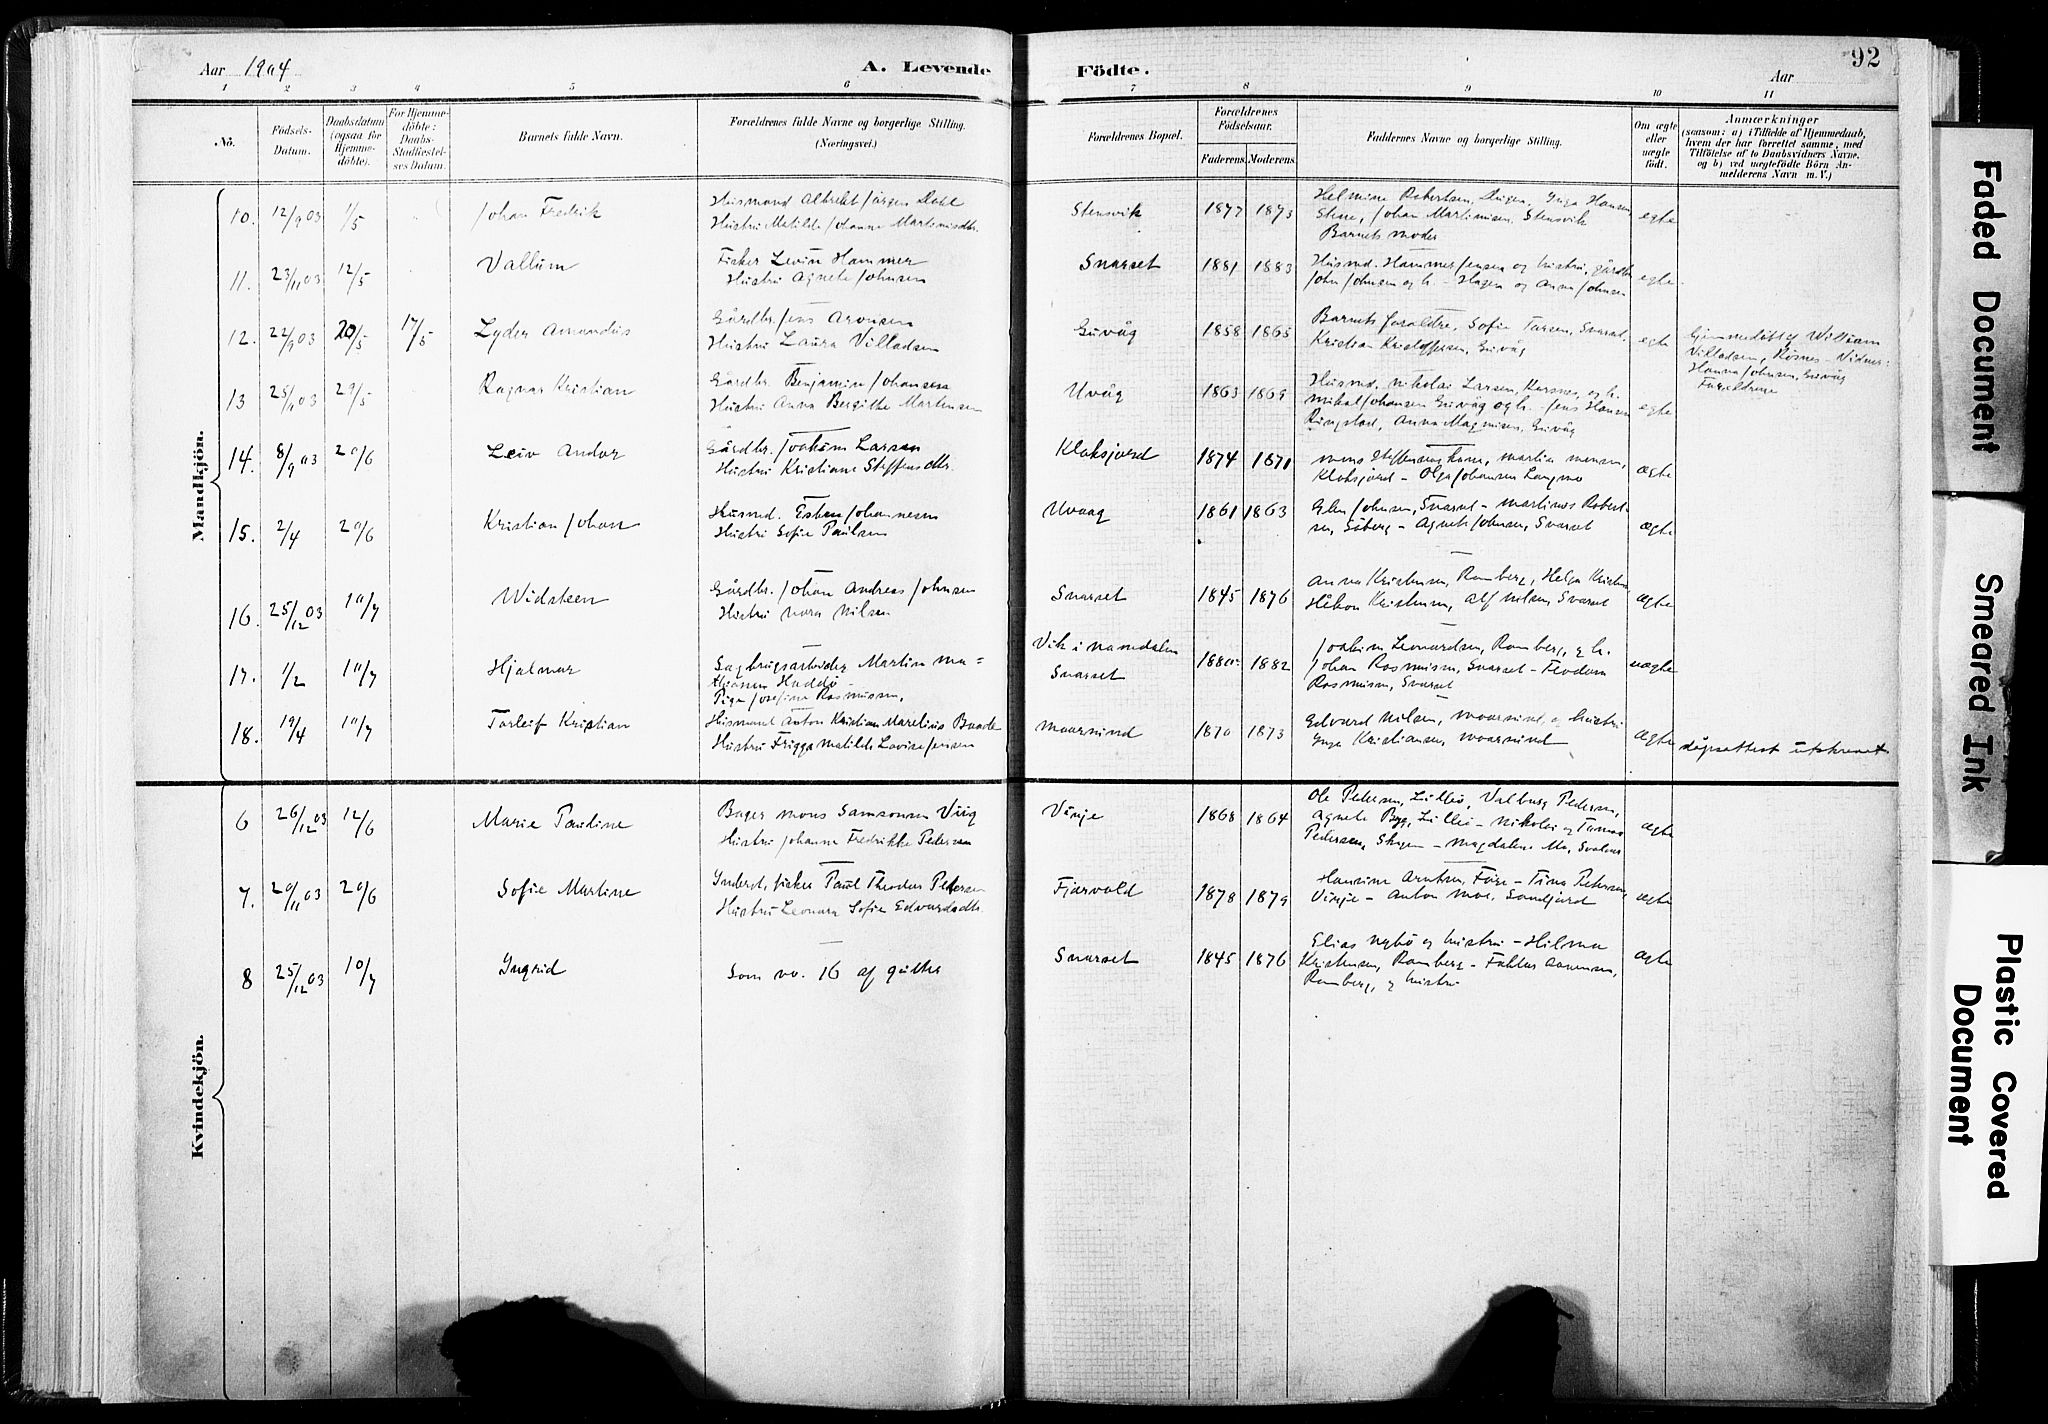 Aar 1904
A. Levende Födte.
Aar
92
1 2 3 4 5 6 7 8 9 10 11
Nô.
Födsels-Datum.
Daabsdatum (ogsaa for Hjemme-döbte).
For Hjemme-döbte: Daabs-Stadfæstel-ses Datum.
Barnets fulde Navn.
Forældrenes fulde Navne og borgerlige Stilling. (Næringsvei.)
Forældrenes Bopæl.
Forældrenes Födselsaar.
Faderens. Moderens.
Faddernes Navne og borgerlige Stilling.
Om ægte eller uægte födt.
Anmærkninger
(saasom: a) i Tilfælde af Hjemmedaab, hvem der har forrettet samme, med Tilföielse af to Daabsvidners Navne. og b) ved uægtefödte Börn An-melderens Navn m. V.)
Mandkjön.
10. 12/9 03 1/5 Johan Fredrik
Husmand Albrekt Jörgen Dahl
Hustru Matilde Johanna Martinusdtr.
Stensvik 1877 1873
Johan Martinusen, Stensvik
Barnets moder
egte
11. 23/11 03 12/5 Vallum
Fisker Levin Hammer
Hustru Agnete Johnsen
Svarset 1881 1883
Husmd. Hammer Jensen og hustru, gårdbr.
John Johnsen og h. - Hagen og Anna Johnsen
egte.
12. 22/9 03 20/5 17/5 Lyder Amandus
Gårdbr. Jens Aronsen
Hustru Laura Villadsen
Guvåg 1858 1865
Barnets foreldre, Sofie Larsen, Svarset.
Kristian Kristoffersen, Guvåg
egte
Hjemmedöbt af William
Villadsen, Rösnes - Vidner:
Hanna Johnsen, Guvåg
Foreldrene
13 25/9 03 29/5 Ragnar Kristian
Gårdbr. Benjamin Johansen
Hustru Anna Bergitte Martensen
Uvåg 1863 1869
Husmd. Nikolai Larsen, og h.
Mikal Johansen Guvåg og h. - Jens Hansen
Ringstad, Anna Magnusen, Guvåg
egte
14. 8/9 03 20/6 Leiv Andor
Gårdbr. Joakim Larsen
Hustru Kristiane Steffensdtr.
Klaksjord 1874 1871
Mons Steffensens kone, Martin Monsen,
Klaksjord - Olga Johansen Langmo
ægte
15. 2/4 20/6 Kristian Johan
Husmd. Esben Johannesen
Hustru Sofie Paulsen
Uvaag 1861 1863
Johnsen, Svarset - Martinus Robert-
sen, Söberg - Agnete Johnsen, Svarset
ægte
16. 25/12 03 10/7 Widsteen
Gårdbr. Johan Andreas Johnsen
Hustru Nora Nilsen
Svarset 1845 1876
Anna Kristensen, Ramberg, Helga Kristens
Håkon Kristensen, Alf Nilsen, Svarset
ægte
17. 1/2 10/7 Hjalmar
Sagbrugsarbeider Martin Ma=
thisen Haddö -
Pige Josefine Rasmussen.
Vik i Namdalen
Svarset
1880 1882
Joakim Leonardsen, Ramberg, og h.
Johan Rasmussen, Svarset - Teodora
Rasmussen, Svarset
uægte
18. 19/4 10/7 Torleif Kristian
Husmand Anton Kristian Marelius Baade
Hustru Frigga Matilde Lovise Jensen
Maarsund 1870 1873
Edvard Nilsen, Maarsund, og hustru
Inga Kristiansen, Maarsund
ægte
dåpsattest utskrevet
Kvindekjön.
6 26/12 03 12/6 Marie Pauline
Bager Mons Samsonsen Viig
Hustru Johanna Fredrikke Pedersen
Vinje 1868 1864
Ole Pedersen, Lilleö, Valborg Pedersen,
Agnete Byg, Lilleö - Nikolai og
Pedersen, Skagen - Magdalene Mo,
ægte
7. 20/11 03 20/6 Sofie Martine
Inderst, fisker Paul Theodor Petersen
Hustru Leonora Sofie Edvardsdtr.
Fjærvold 1878 1879
Hansine Arntsen, Före - Tina Petersen,
Vinje - Anton Moe, Sandfjord
ægte
8 25/12 03 10/7 Ingrid
Som no. 16 af gutter
Svarset 1845 1876
Elias Nybö og hustru - Hilma
Kristensen, Ramberg -
Ramberg, og hustru
ægte
Faded Document
Smeared Ink
Plastic Covered Document